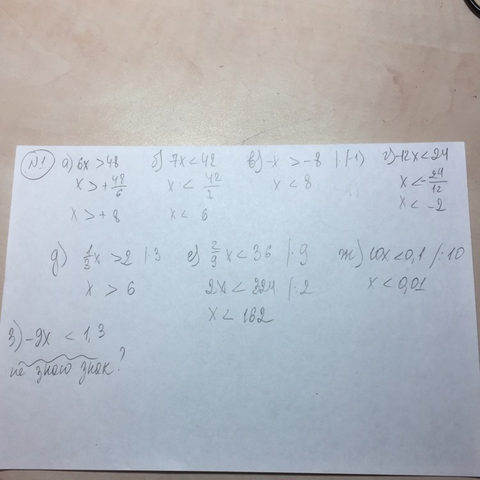 №1 а) 6x > 48 б) 7x < 42 в) -x > -8 | (-1) г) -12x < 24
x > + 48/6 x < 42/7 x < 8 x < - 24/12
x > + 8 x < 6 x < -2
д) 1/3 x > 2 | 3 е) 2/9 x < 36 |· 9 ж) 10x < 0,1 /: 10
x > 6 2x < 324 |: 2 x < 0,01
x < 162
з) -9x < 1,3
не знаю знак?